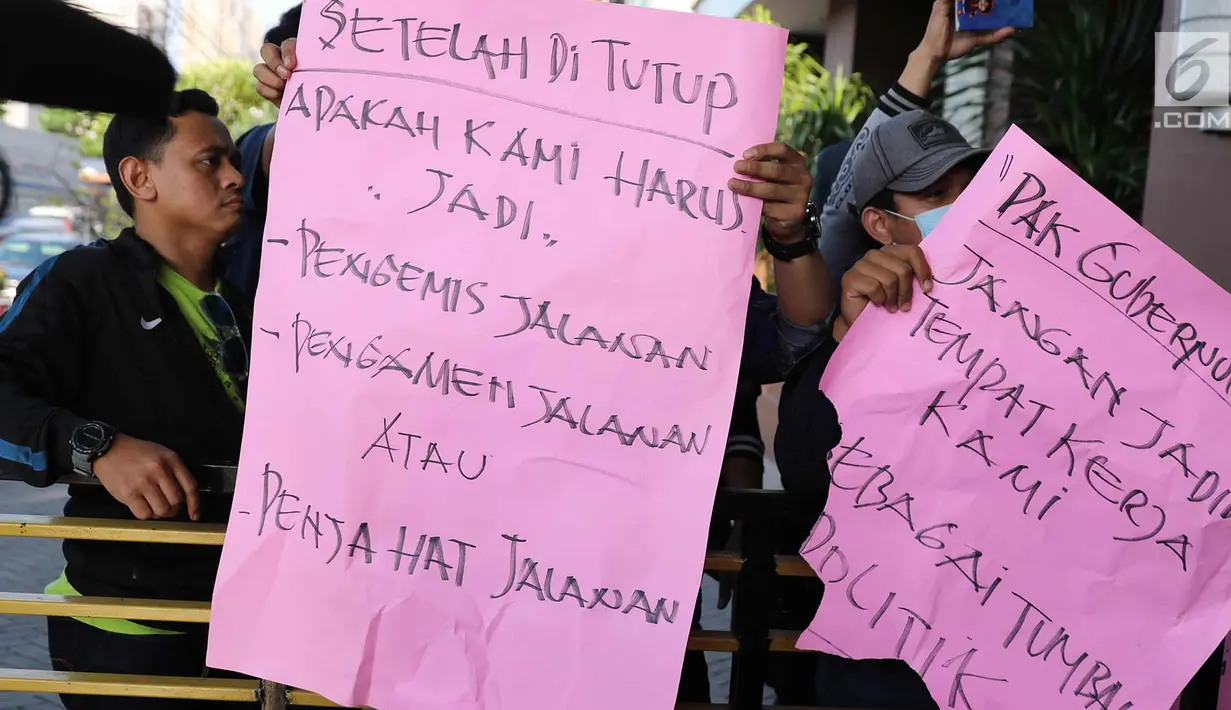 SETELAH DI TUTUP
APAKAH KAMI HARUS
"JADI"
- PENGEMIS JALANAN
- PENGAMEN JALANAN
ATAU
- PENJAHAT JALANAN
"PAK GUBERNU
JANGAN JADI
TEMPAT KERJA
KAMI
SEBAGAI TUMBA
POLITIK
6
.COM